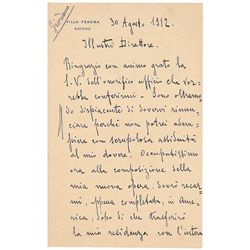 Giordano
VILLA FEDORA
BAVENO
30 Agosto 1912.
Illustre Direttore.
Ringrazio con animo grato la
S. V. dell'onorifico ufficio che vor-
rebbe conferirmi. Sono oltremo-
do dispiacente di dovervi rinun-
ciare perchè non potrei adem-
piere con scrupolosa assiduità
al mio dovere. Occupatissimo
ora alla composizione della
mia nuova opera, dovrò recar-
mi, appena completata, in Ame-
rica, dopo di che trasferirò
la mia residenza con l'intera